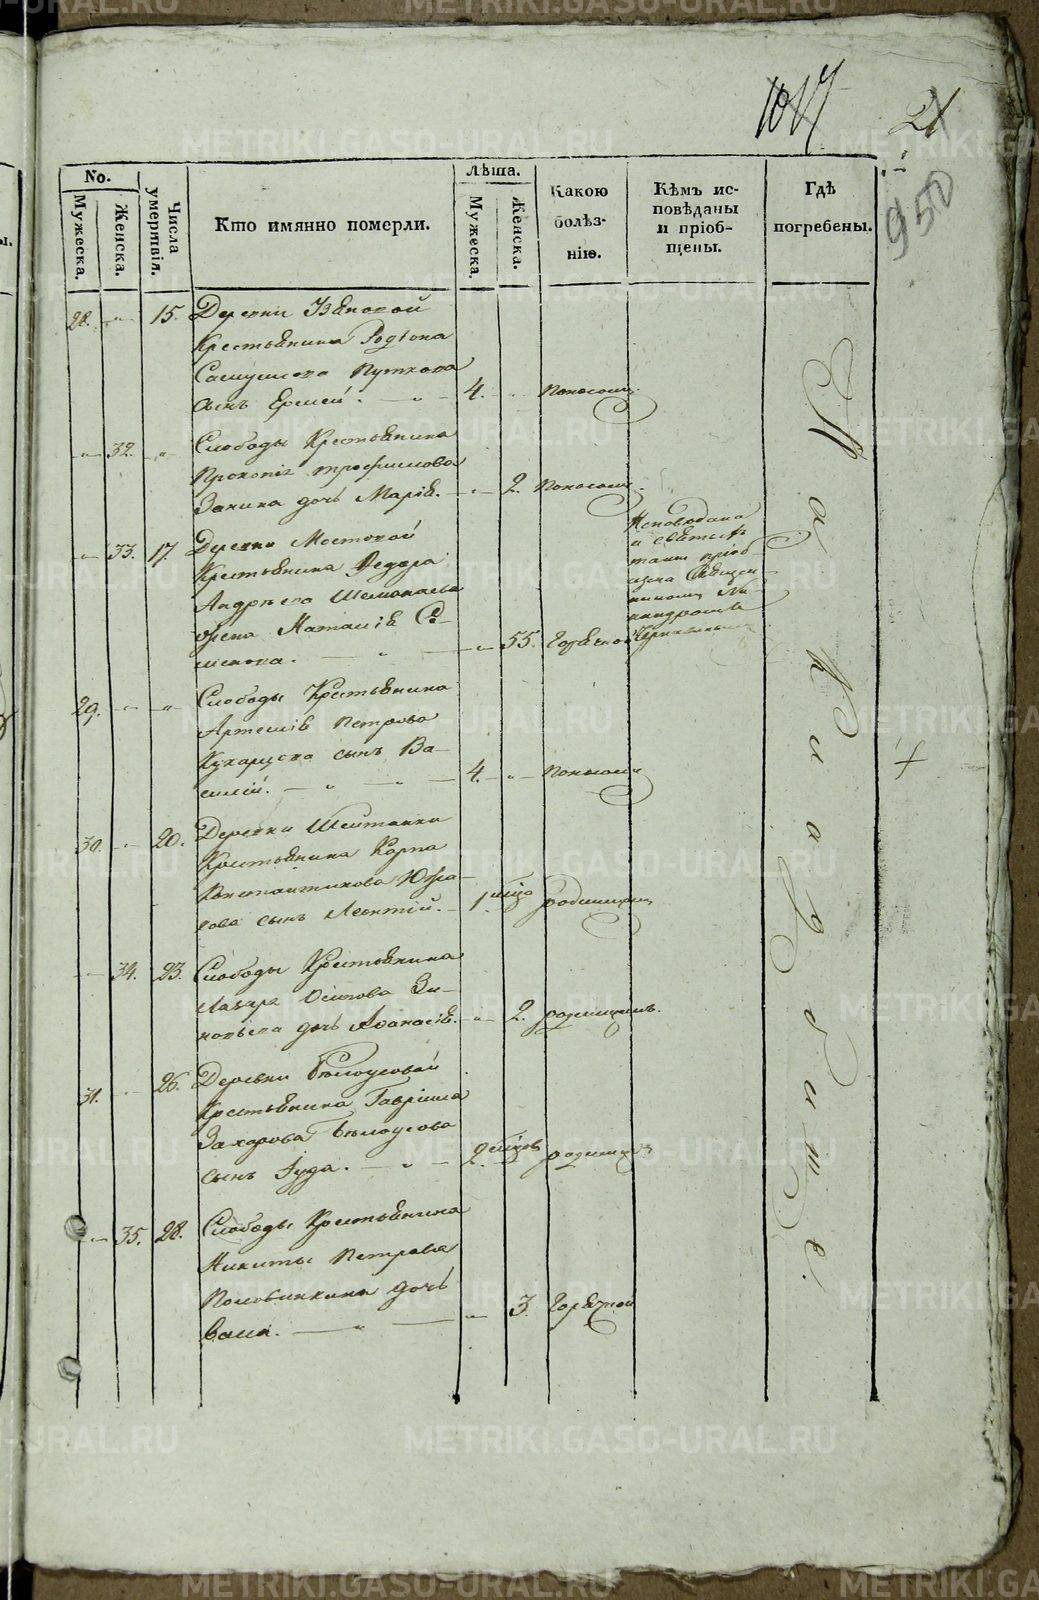 1017
21
950
No.
Мужеска.
Женска.
Числа умертвія.
Кто имянно померли.
Лѣта.
Мужеска.
Женска.
Какою болѣз-
нію.
Кѣмъ ис-
повѣданы
и пріоб-
щены.
Гдѣ
погребены.
28. 15. Деревни
Крестьянина Родіона
сынъ Еремей. 4. Поносомъ
32. Слободы Крестьянина
Прокопія Трофимова
дочь Марія. 2. Поносомъ.
33. 17. Деревни Мостовой
Крестьянина Федора
Андреева
жена Наталія Се-
менова. 55. Горячкой
Исповѣдана
и святыхъ
таинъ пріоб-
щена Священ-
никомъ Ни-
кандромъ
29. Слободы Крестьянина
Артемія Петрова
сынъ Ва-
силій. 4. Поносомъ
30. 20. Деревни Шайтанки
Крестьянина Карпа
Константинова Южа-
кова сынъ Леонтій. 1 мѣся родимцомъ
34. 23. Слободы Крестьянина
Лазаря Осипова Зи-
новьева дочь Афанасія. 2. родимцомъ.
31. 26. Деревни Белоусовой
Крестьянина Гавріила
Захарова Белоусова
сынъ Іуда. 2 родимцомъ
35. 28. Слободы Крестьянина
Никиты Петрова
Половинкина дочь
3. Горячкой
На кладбище.
METRIKI.GASO-URAL.RU